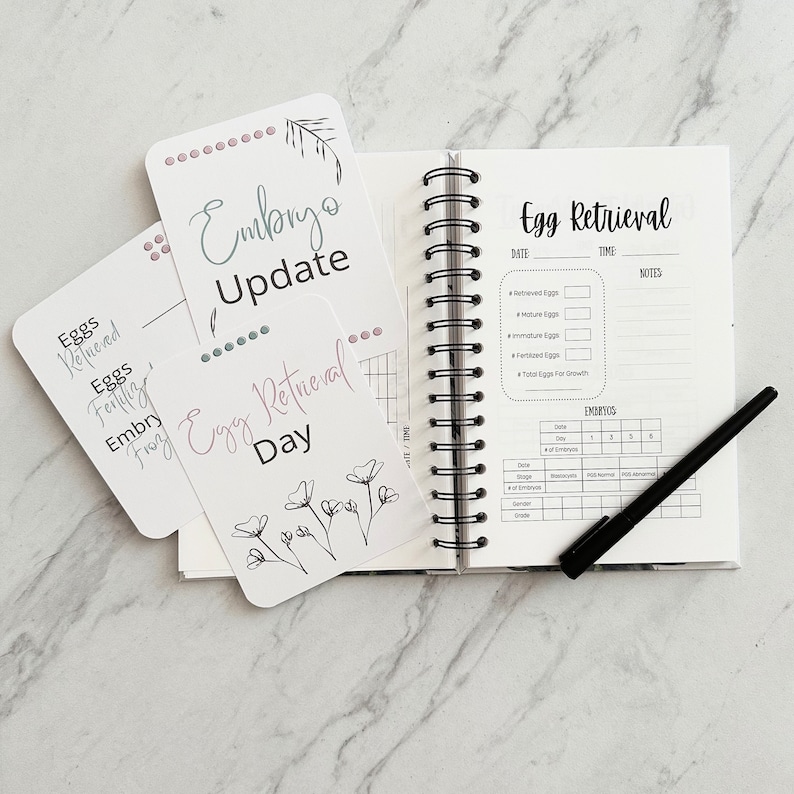 Embryo
Update
Eggs
Retrieved
Eggs
Embryo
Egg Retrieval
Day
DATE / TIME:
Egg Retrieval
DATE: TIME:
# Retrieved Eggs:
# Mature Eggs:
# Immature Eggs:
# Fertilized Eggs:
# Total Eggs For Growth
NOTES:
EMBRYOS:
Date
Day 1 3 5 6
# of Embryos
Date
Stage Blastocysts PGS Normal PGS Abnormal
# of Embryos
Gender
Grade